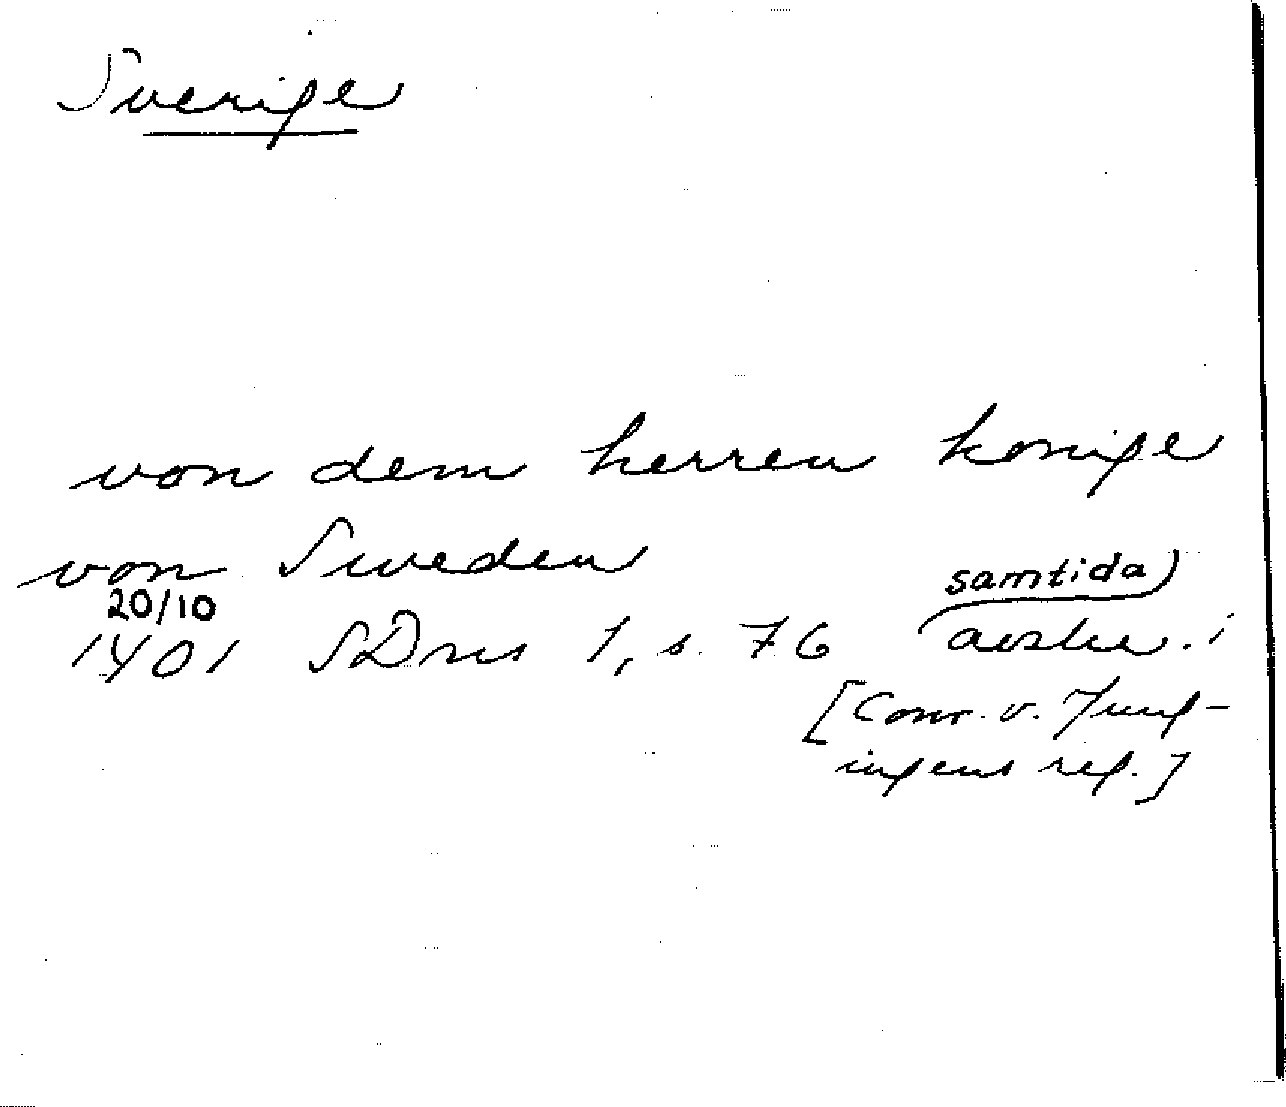 Sverige
von dem herren konige
von Sweden
20/10 samtida
1401 SDns 1, s. 76 avskr. i
[Conr. v. Jung-
ingens reg.]